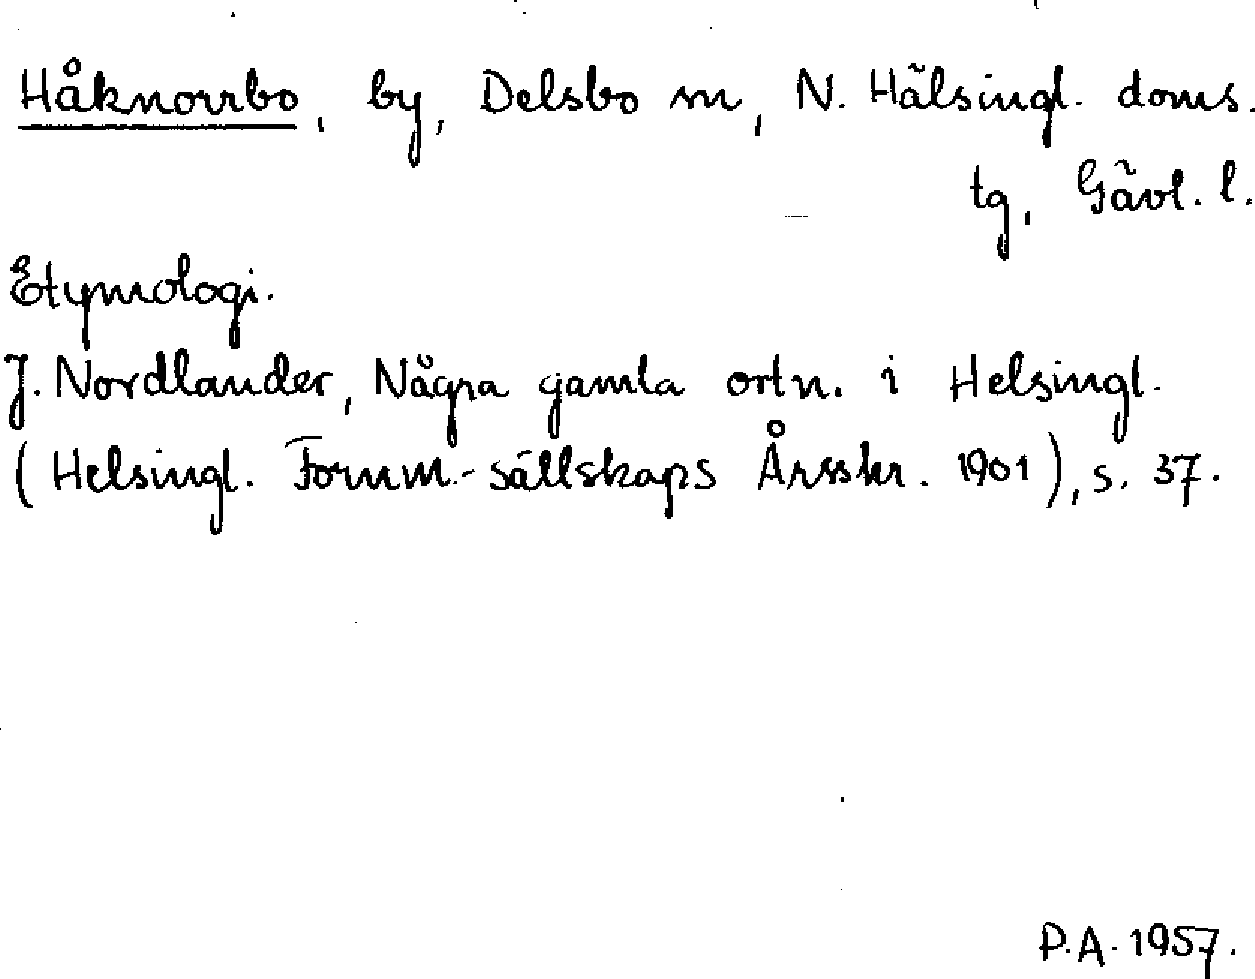 Håknorrbo, by, Delsbo sn, N. Hälsingl. doms.
tg, Gävl. l.
Etymologi.
J. Nordlander, Några gamla ortn. i Helsingl.
(Helsingl. Fornm.-sällskaps Årsskr. 1901), s. 37.
P.A. 1957.